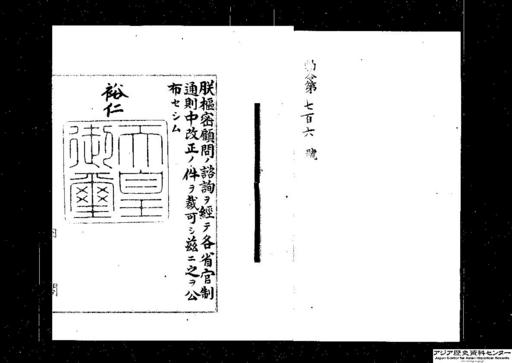 勅令第七百六號
朕樞密顧問ノ諮詢ヲ經テ各省官制
通則中改正ノ件ヲ裁可シ茲ニ之ヲ公
布セシム
裕仁
天皇
御璽
内閣
アジア歴史資料センター
Japan Center for Asian Historical Records